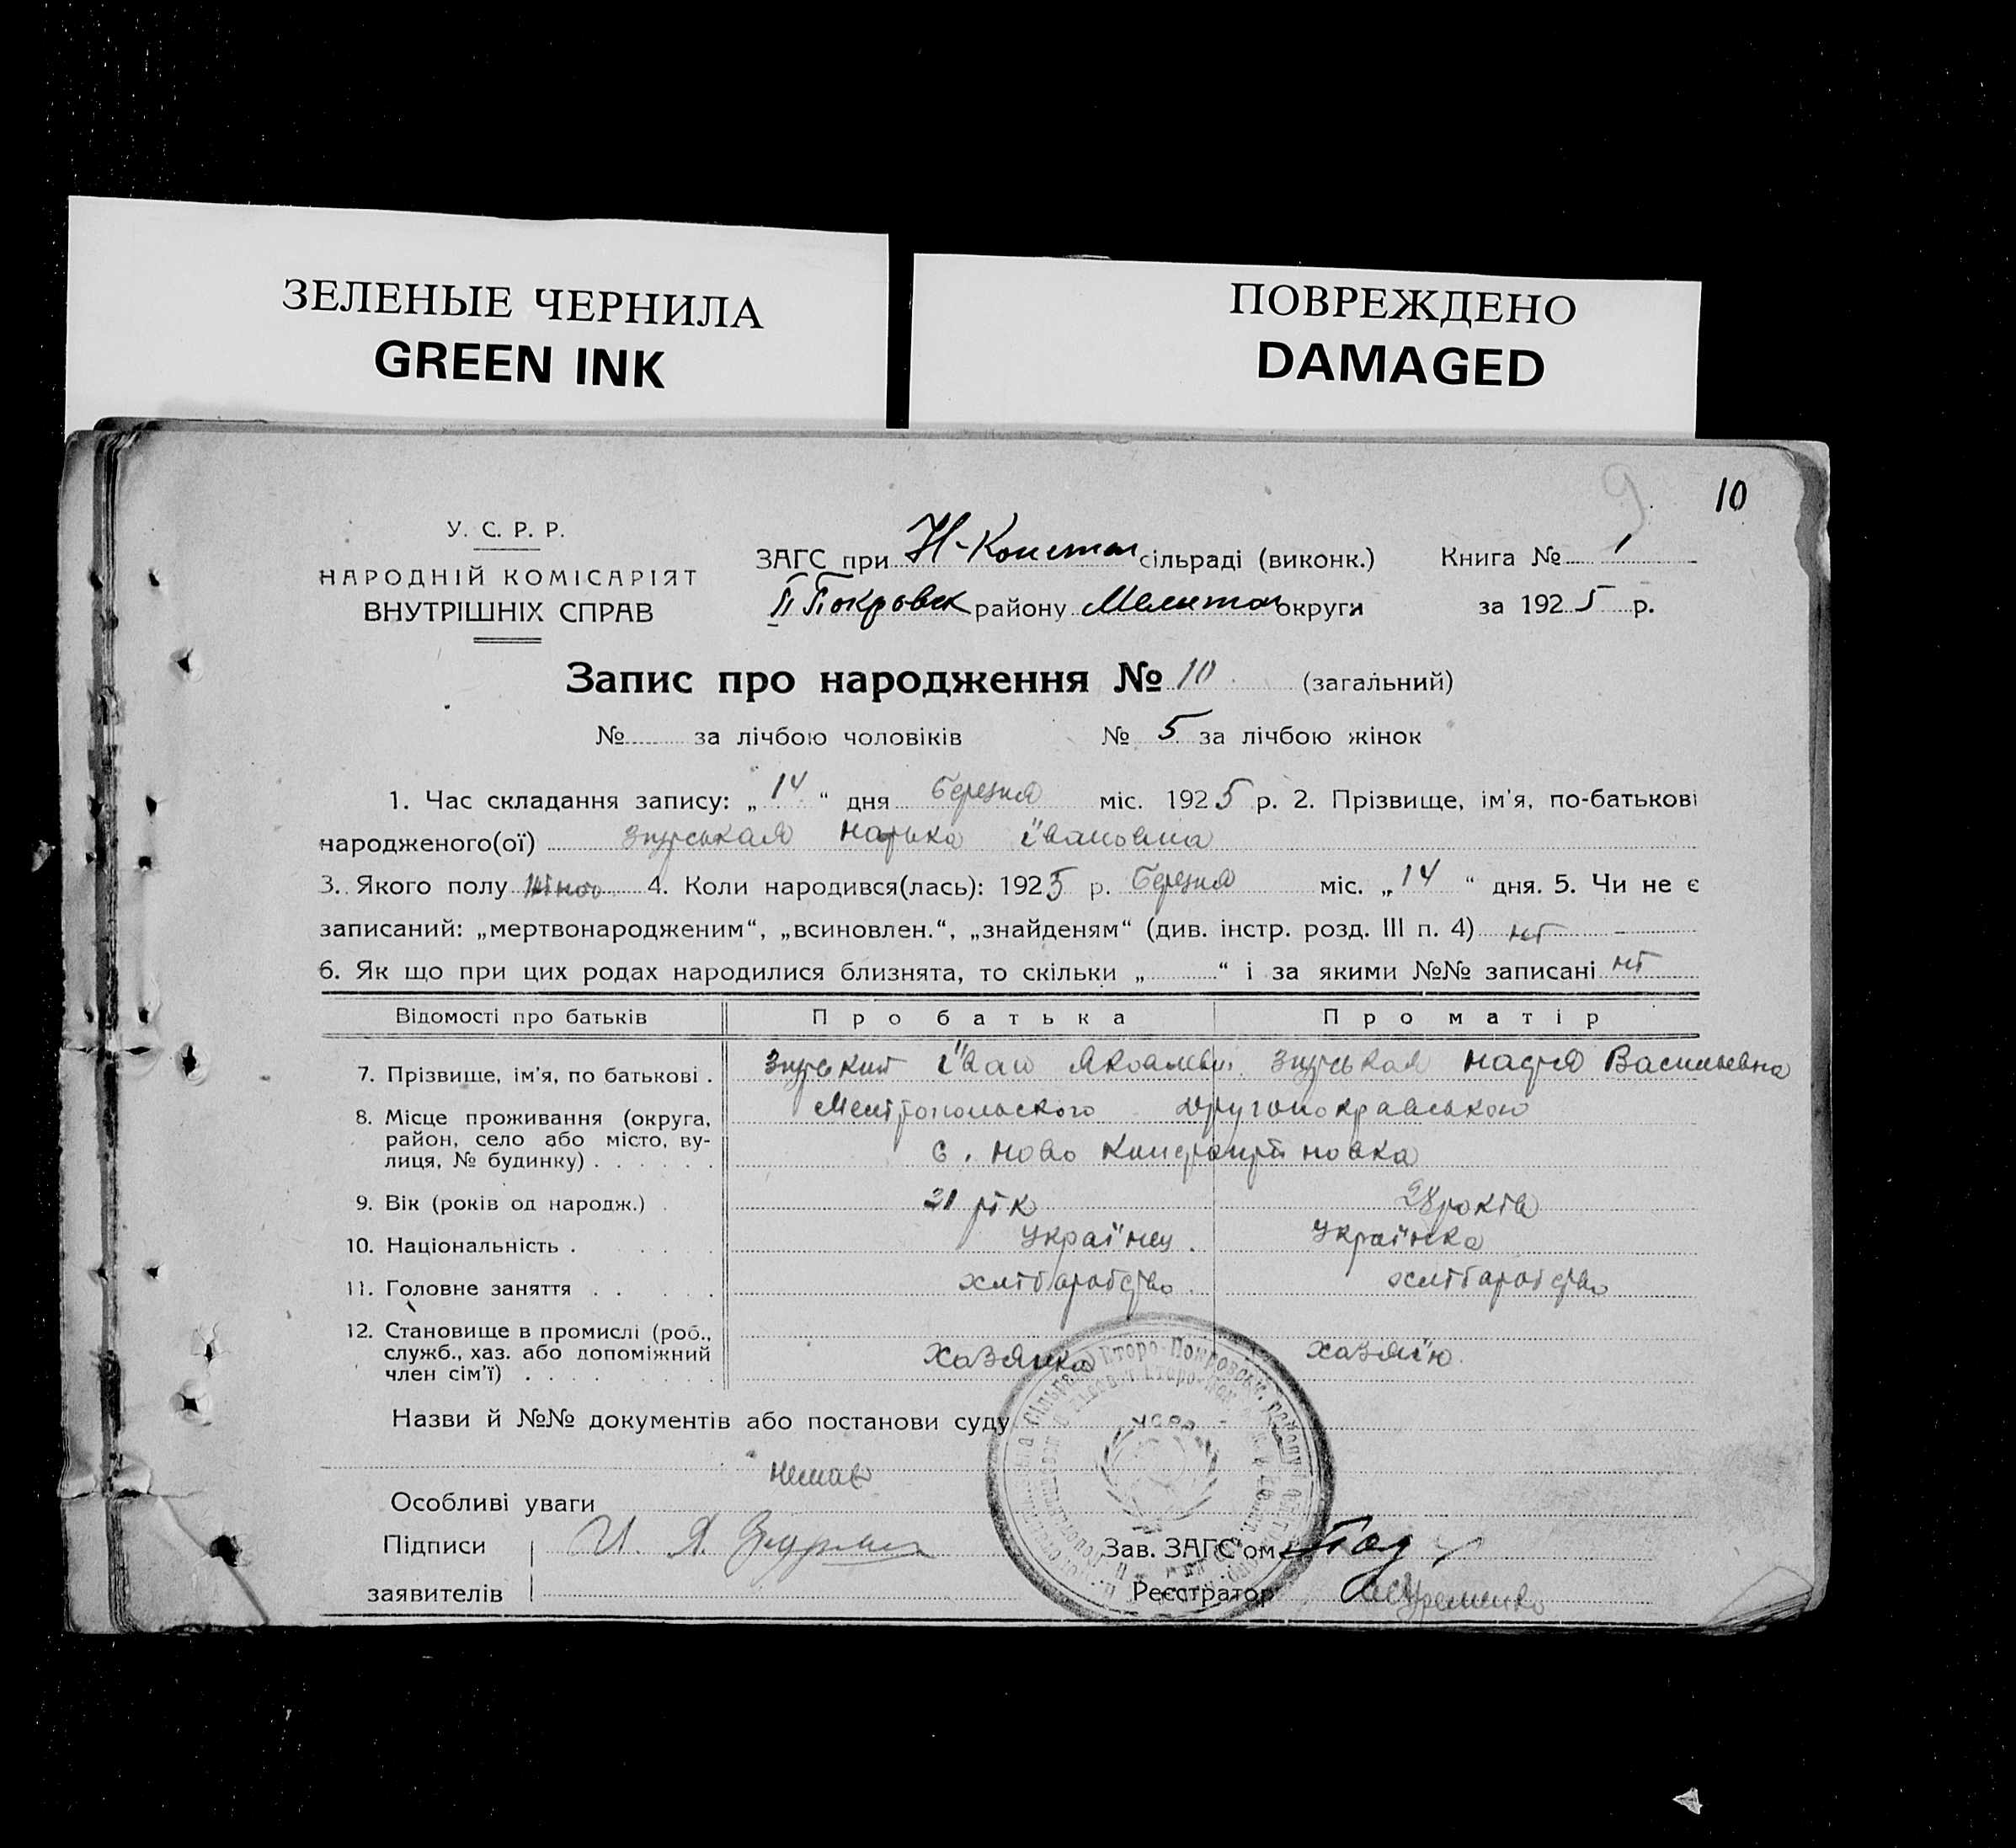 ЗЕЛЕНЫЕ ЧЕРНИЛА
GREEN INK
ПОВРЕЖДЕНО
DAMAGED
9 10
У. С. Р. Р.
НАРОДНІЙ КОМІСАРІЯТ
ВНУТРІШНІХ СПРАВ
ЗАГС при Н-Констан сільраді (виконк.) Книга № 1
II Покровск району Мелитоп округи за 1925 р.
Запис про народження № 10 (загальний)
№ за лічбою чоловіків № 5 за лічбою жінок
1. Час складання запису: „14“ дня березня міс. 1925 р. 2. Прізвище, ім'я, по-батькові
народженого(ої) Івановна
3. Якого полу жіноо 4. Коли народився(лась): 1925 р. березня міс. „14“ дня. 5. Чи не є
записаний: „мертвонародженим“, „всиновлен.“, „знайденям“ (див. інстр. розд. III п. 4) ні
6. Як що при цих родах народилися близнята, то скільки „ “ і за якими №№ записані ні
Відомості про батьків Про батька Про матір
7. Прізвище, ім'я, по батькові . Іван Яковлевич Надія Васильевна
8. Місце проживання (округа, район, село або місто, вулиця, № будинку) Другопокравською
с. Ново Константіновка
9. Вік (років од народж.) 31 рік 28 років
10. Національність . Українец . Українка
11. Головне заняття . . хлібаробство . хлібаробство
12. Становище в промислі (роб., служб., хаз. або допоміжний член сім'ї) . . . . Хазяика хазяїю
Назви й №№ документів або постанови суду
немає
Особливі уваги
Підписи И. Я. Зав. ЗАГС'ом
заявителів Реєстратор